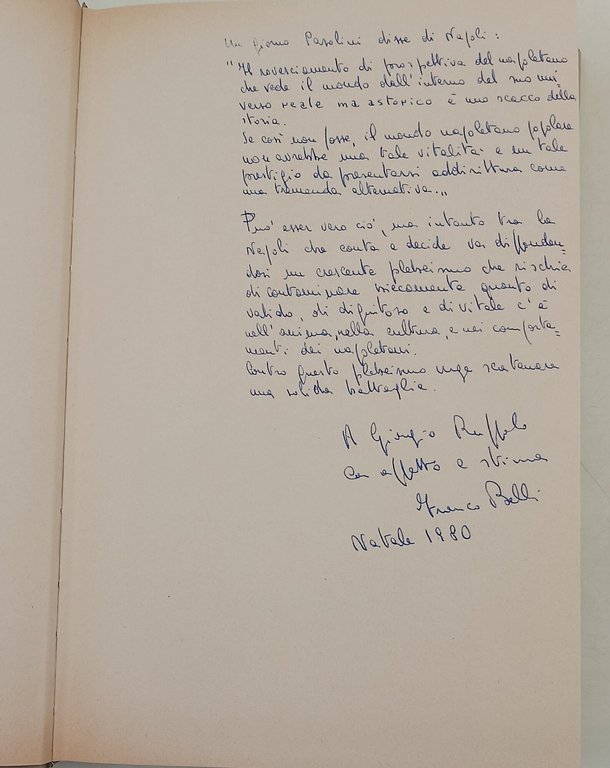 Un giorno Pasolini disse di Napoli:
"Il rovesciamento di prospettiva del napoletano
che vede il mondo dall'interno del suo uni-
verso reale ma astorico è uno scacco della
storia.
Se così non fosse, il mondo napoletano popolare
non avrebbe una tale vitalità e un tale
prestigio da presentarsi addirittura come
una tremenda alternativa."
Può esser vero ciò, ma intanto tra la
Napoli che conta e decide va diffonden-
dosi un crescente plebeismo che rischia
di contaminare biecamente quanto di
valido, di dignitoso e di vitale c'è
nell'anima, nella cultura, e nei comporta-
menti dei napoletani.
Contro questo plebeismo urge scatenare
una solida battaglia.
A Giorgio Ruffolo
con affetto e stima
Franco Belli
Natale 1980